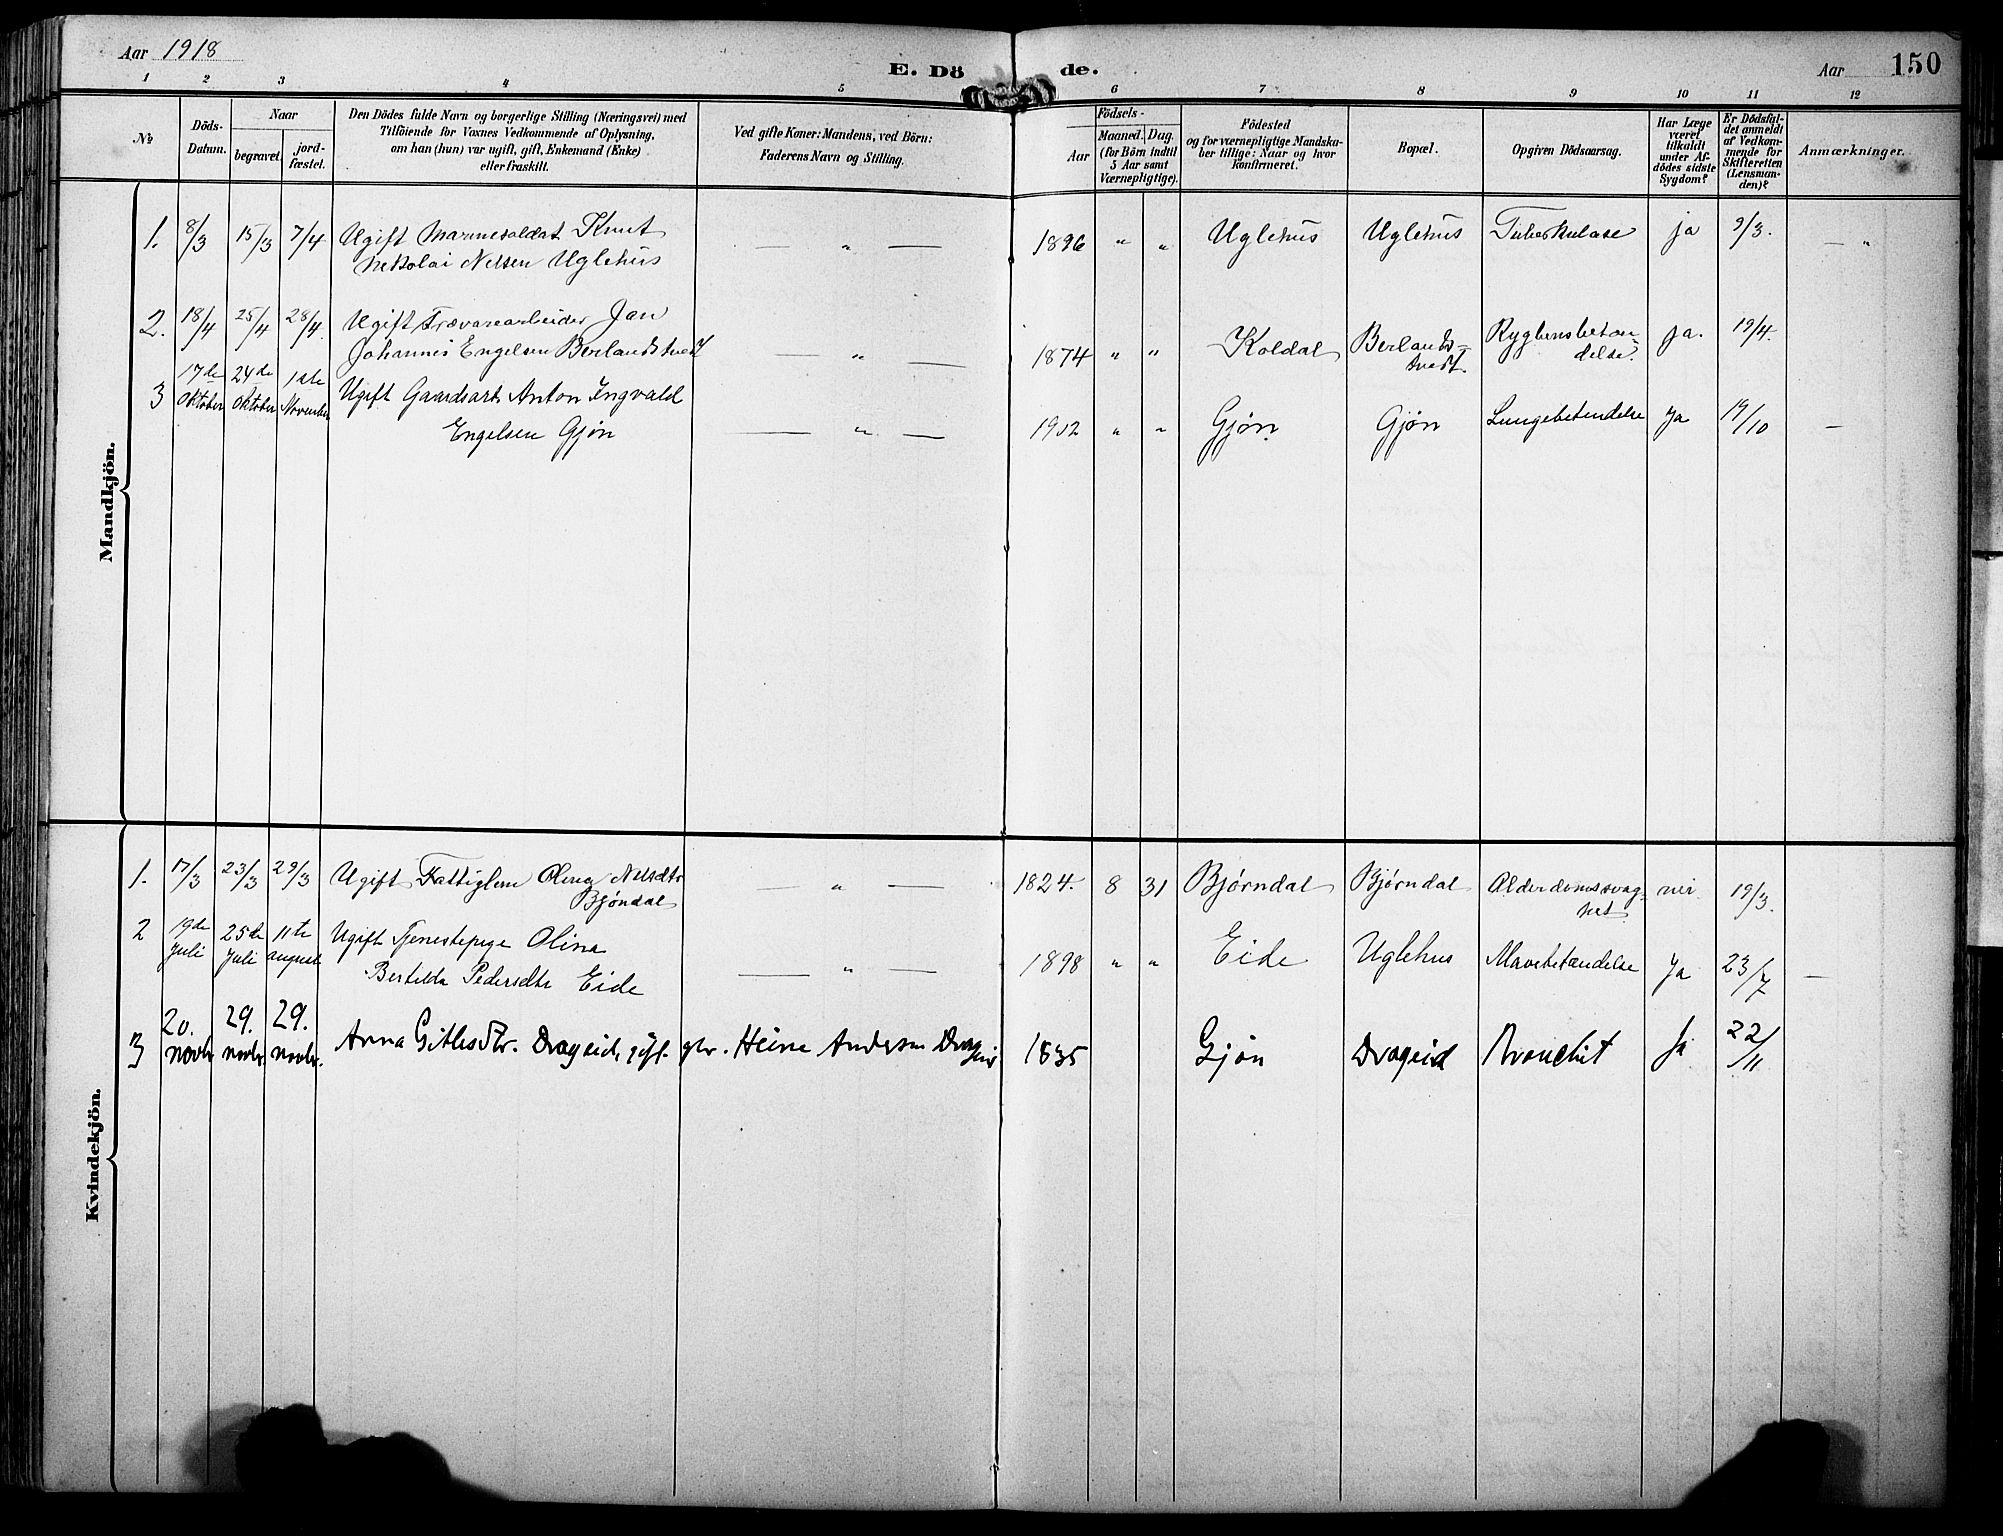 Aar 1918
E. Dö de.
Aar 150
1 2 3 4 5 6 7 8 9 10 11 12
No
Döds-
Datum.
Naar
begravet.
jord-
fæstet.
Den Dödes fulde Navn og borgerlige Stilling (Næringsvei) med
Tilföiende for Voxnes Vedkommende af Oplysning,
om han (hun) var ugift, gift, Enkemand (Enke)
eller fraskilt.
Ved gifte Koner: Mandens, ved Börn:
Faderens Navn og Stilling.
Födsels-
Aar
Maaned. Dag.
(for Börn indtil
5 Aar samt
Værnepligtige).
Födested
og for værnepligtige Mandska-
ber tillige: Naar og hvor
konfirmeret.
Bopæl.
Opgiven Dödsaarsag.
Har Læge
været
tilkaldt
under Af-
dödes sidste
Sygdom?
Er Dödsfal-
det anmeldt
af Vedkom-
mende for
Skifteretten
(Lensman-
den)?
Anmærkninger.
Mandkjön.
1. 8/3 15/3 7/4 Ugift Marinesoldat Knut — „ — 1896 „ „ Uglehus Uglehus Tuberkulose ja 9/3. — „
Nikolai Nilsen Uglehus
2. 18/4 25/4 28/4. Ugift Trævarearbeider Jan
Johannes Engelsen Berlandstvedt — „ — 1874 „ „ Koldal Berlands- Rygbensbetæn- ja. 19/4.
tvedt. delse.
3 17de 24de 1ste Ugift Gaardsarb. Anton Ingvald
Oktober Oktober November
Engelsen Gjøn — „ — 1902 „ „ Gjøn Gjøn Lungebetendelse Ja 19/10 —
Kvindekjön.
1. 17/3 23/3 29/3 Ugift Fattiglem Olina Nilsdtr — „ — 1824. 8 31 Bjørndal Bjørndal Alderdomssvag- nei 19/3.
Bjöndal het
2 19de 25de 11te Ugift Tjenestepige Olina
Juli Juli august
Bertilda Pedersdtr Eide — „ — 1898 „ „ Eide Uglehus Mavebetændelse Ja 23/7 —
3 20. 29. 29.
novbr novbr novbr. Anna Gitlesdtr. Drageid, gift. Heine Andersen Drageid 1835 Gjøn Drageid Bronchit Ja 22/11